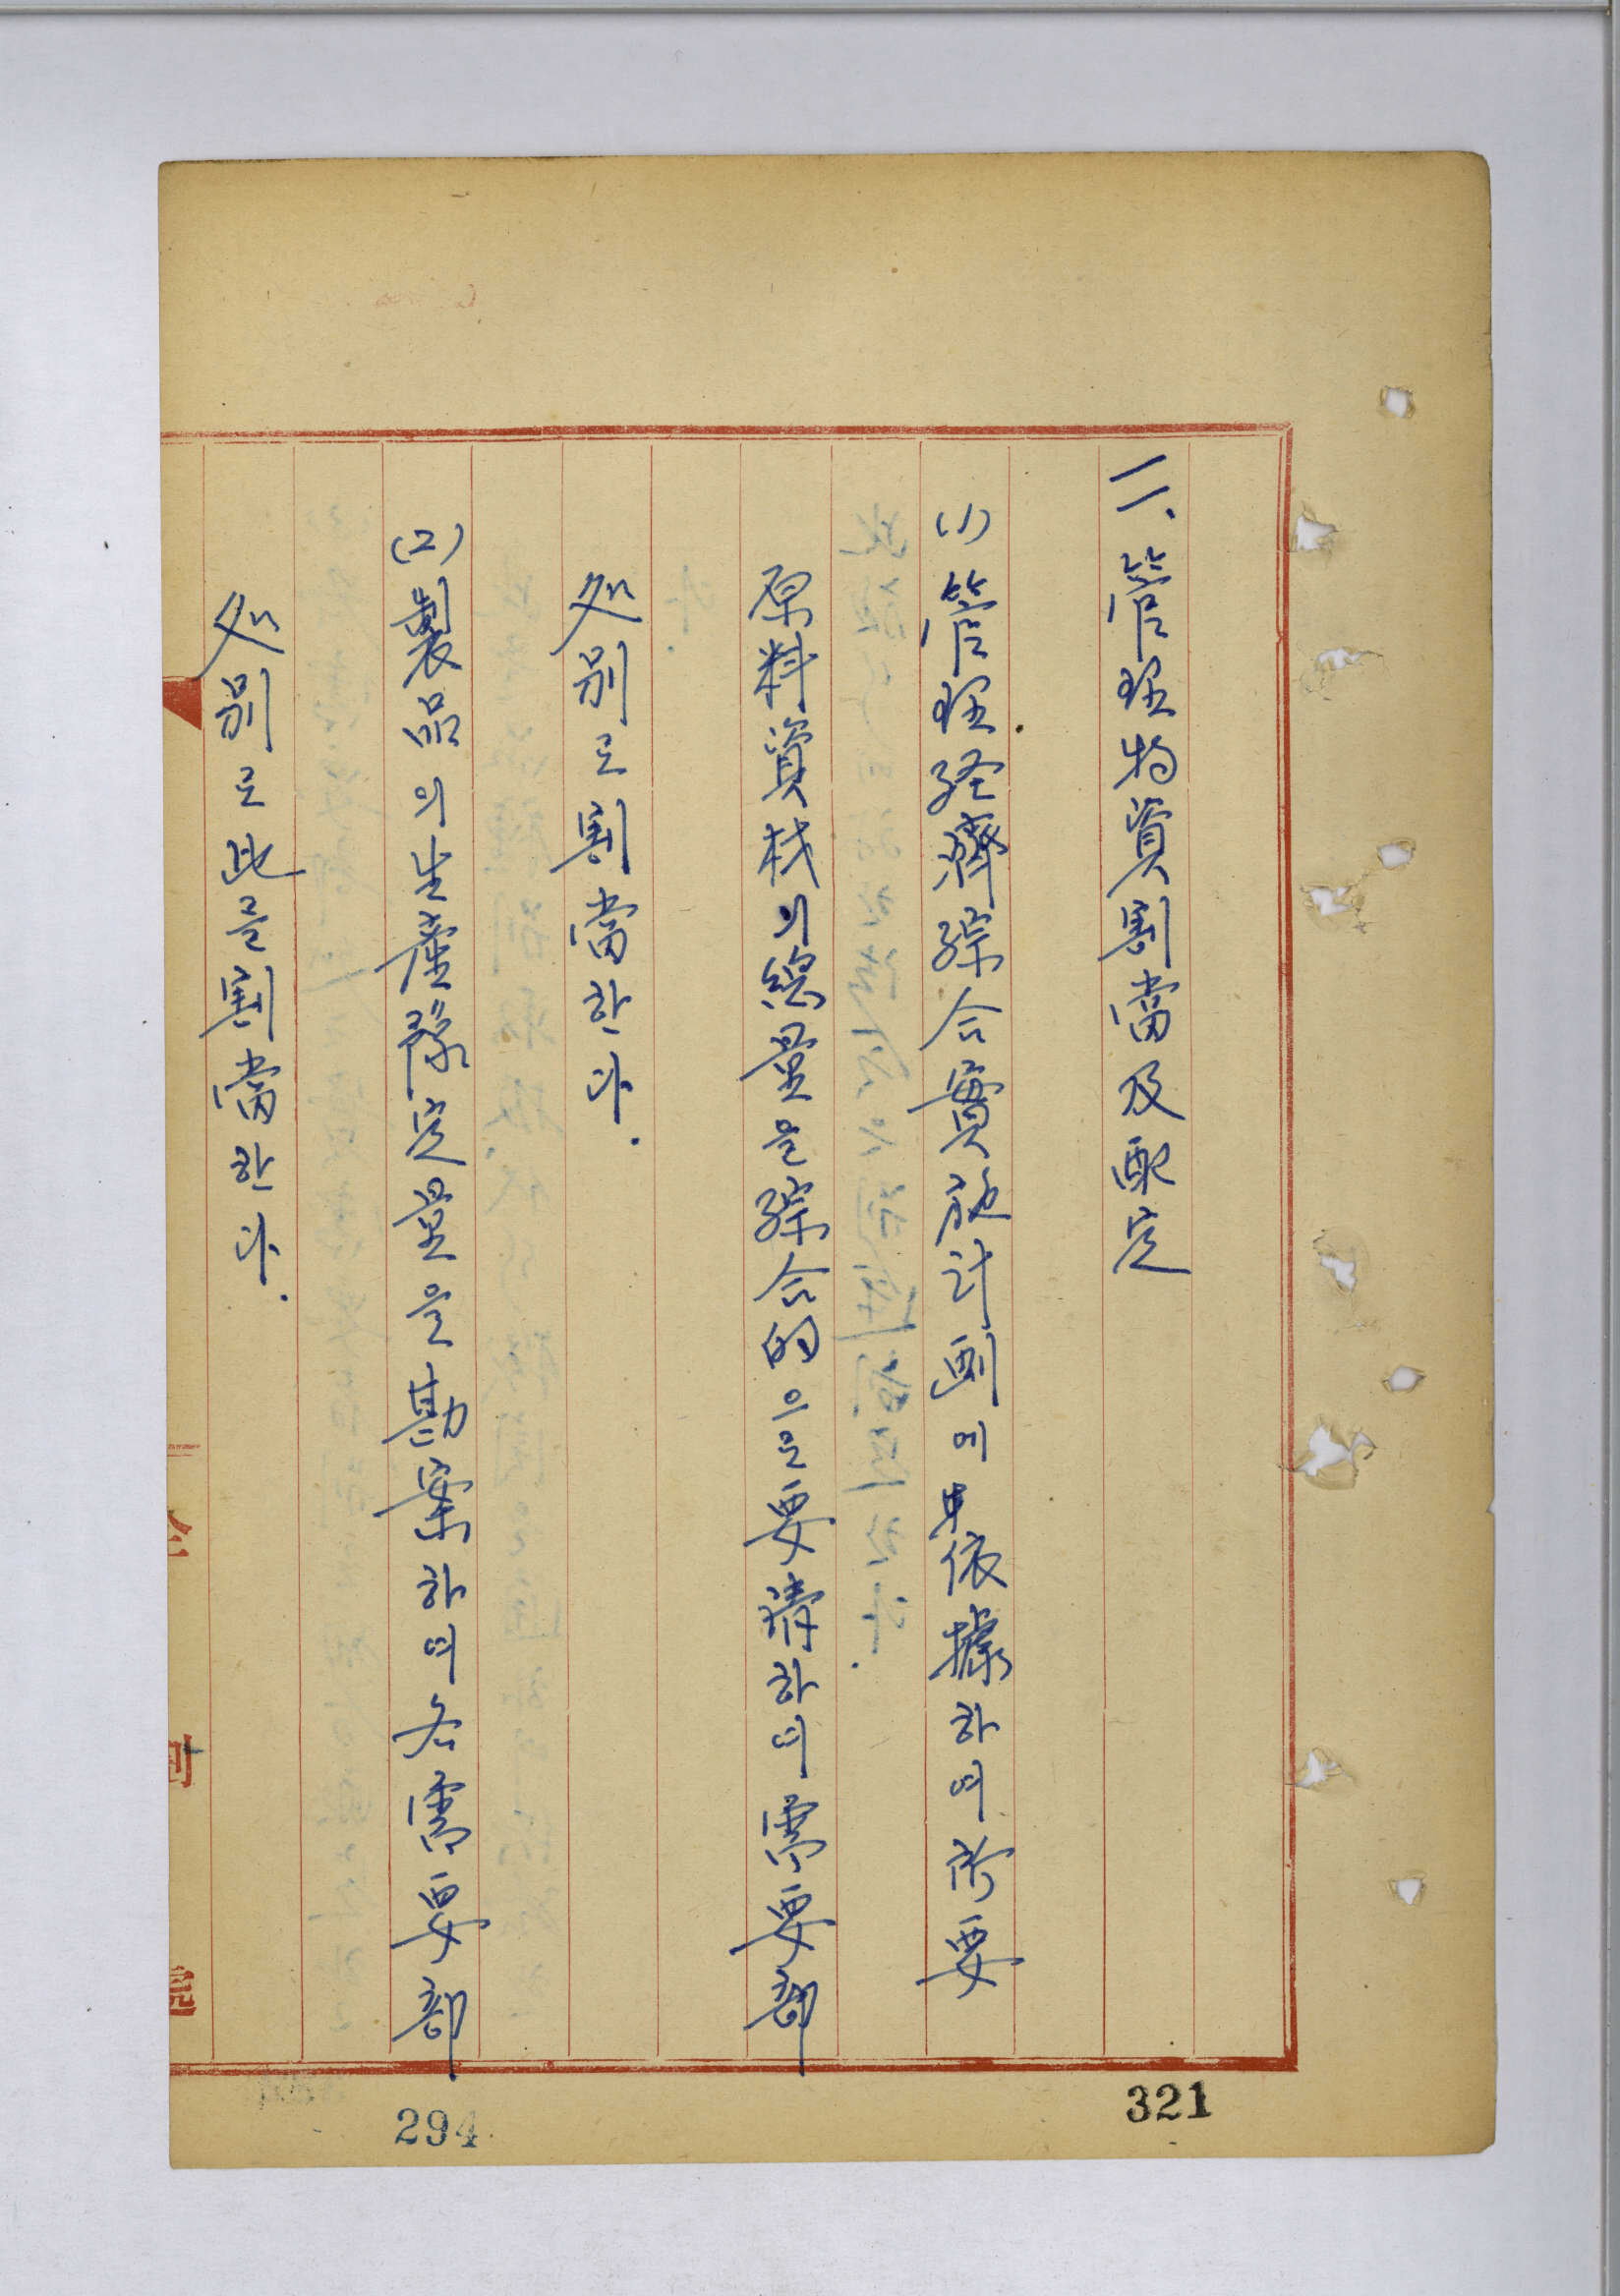 二、管理物資割當及配定
(1) 管理經濟綜合實施計劃에 依據하의 所要
原料資材의 總量을 綜合的으로 要請하의 需要部
處別로 割當한다.
(2) 製品의 生産豫定量을 勘案하의 各需要部
處別로 此를 割當한다.
321
294